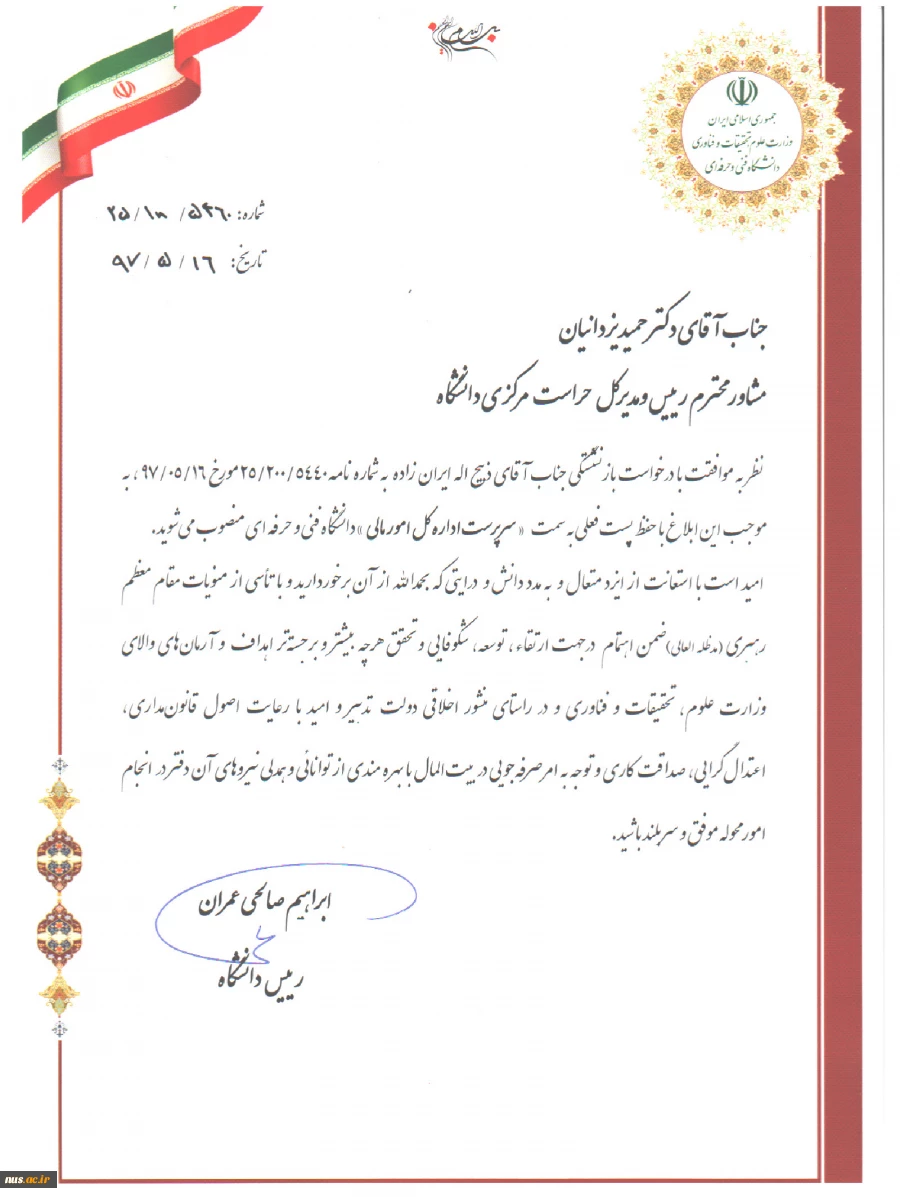 بسم الله الرحمن الرحیم
جمهوری اسلامی ایران
وزارت علوم، تحقیقات و فناوری
دانشگاه فنی و حرفه‌ای
شماره: ۲۵/۱۰۰/۵۴۶۰
تاریخ: ۹۷/۵/۱۶
جناب آقای دکتر حمید یزدانیان
مشاور محترم رییس و مدیرکل حراست مرکزی دانشگاه
نظر به موافقت با درخواست بازنشستگی جناب آقای ذبیح اله ایران زاده به شماره نامه ۲۵/۲۰۰/۵۴۴۰ مورخ ۹۷/۰۵/۱۶، به
موجب این ابلاغ با حفظ پست فعلی به سمت «سرپرست اداره کل امور مالی» دانشگاه فنی و حرفه ای منصوب می شوید.
امید است با استعانت از ایزد متعال و به مدد دانش و درایتی که بحمدالله از آن برخوردارید و با تأسی از منویات مقام معظم
رهبری (مدظله العالی) ضمن اهتمام در جهت ارتقاء، توسعه، شکوفایی و تحقق هرچه بیشتر و برجسته‌تر اهداف و آرمان‌های والای
وزارت علوم، تحقیقات و فناوری و در راستای منشور اخلاقی دولت تدبیر و امید با رعایت اصول قانون‌مداری،
اعتدال گرایی، صداقت کاری و توجه به امر صرفه جویی در بیت المال با بهره مندی از توانائی و همدلی نیروهای آن دفتر در انجام
امور محوله موفق و سربلند باشید.
ابراهیم صالحی عمران
رییس دانشگاه
nus.ac.ir